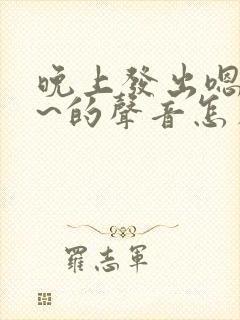 晚上發出嗯
~的聲音怎
羅志軍